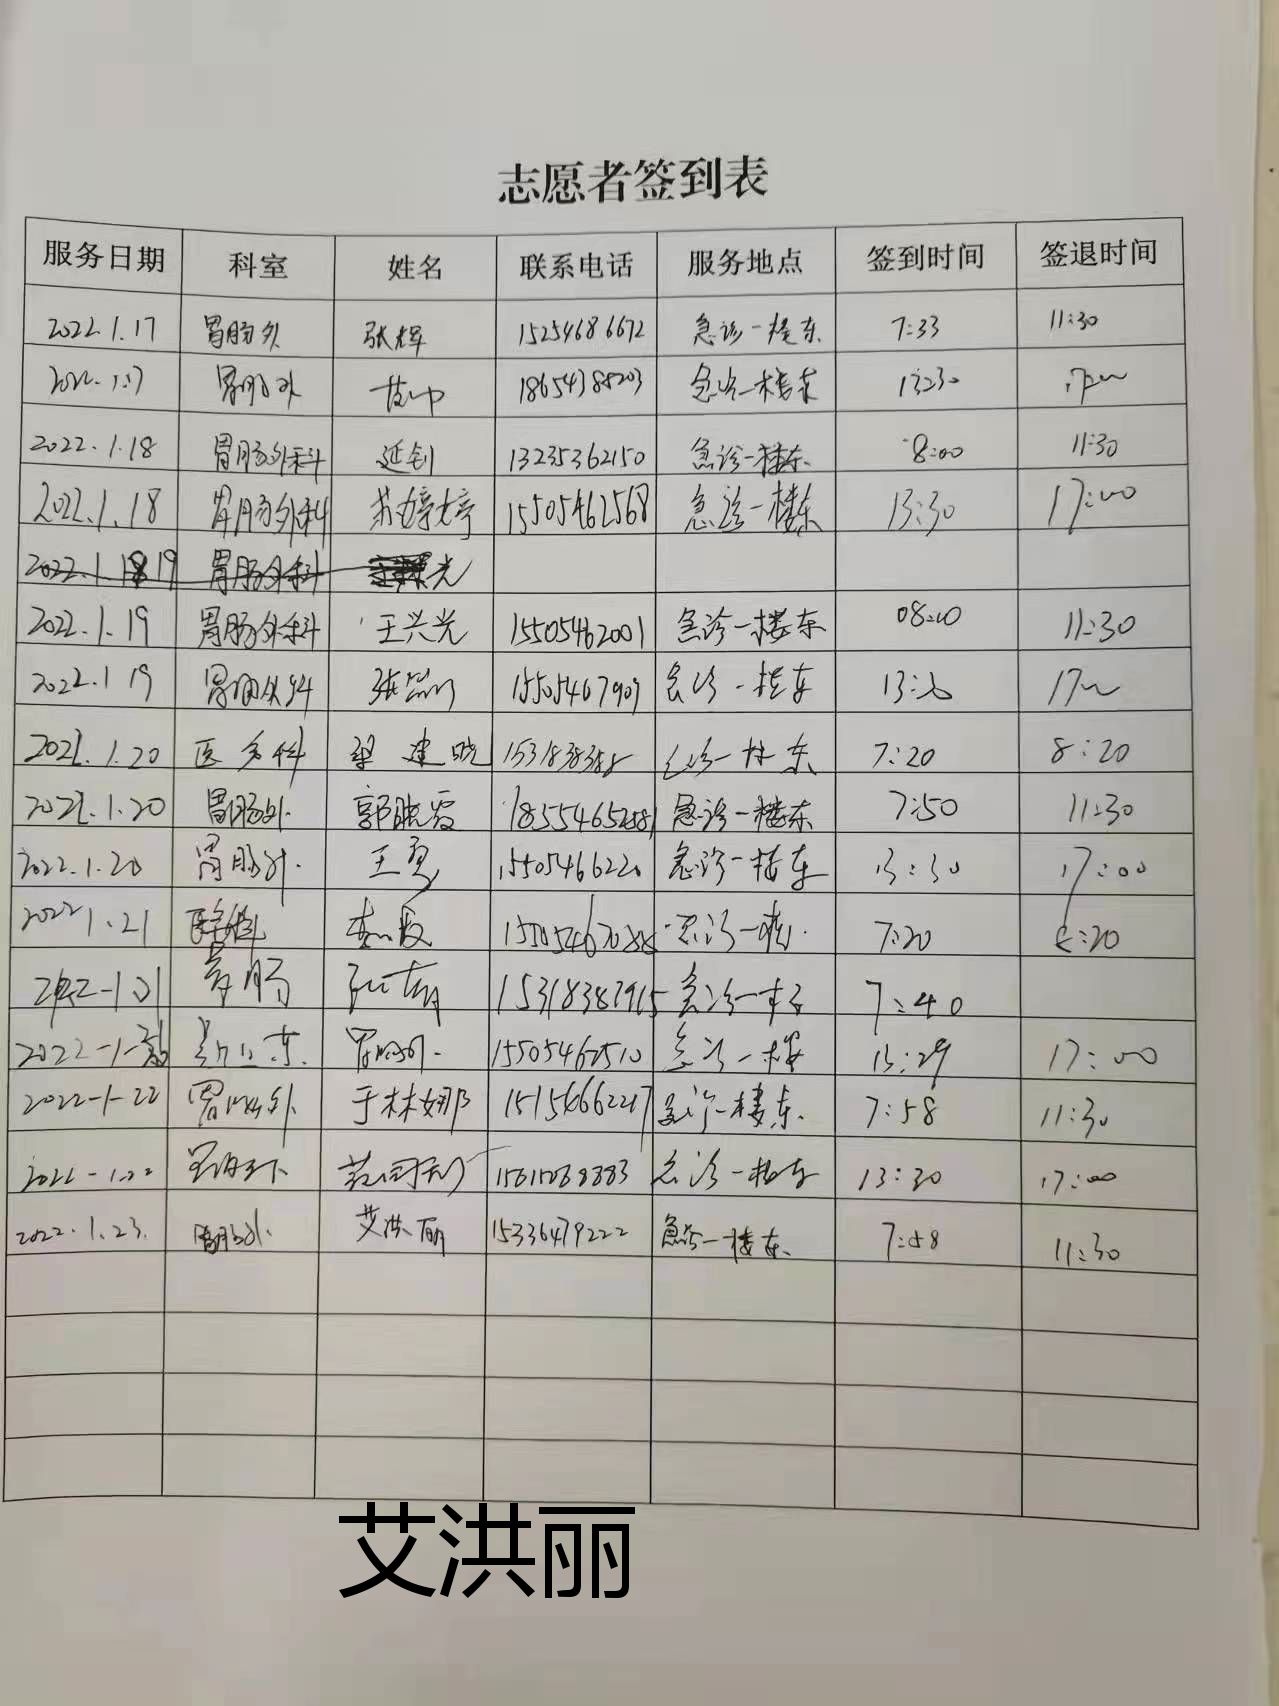 志愿者签到表
服务日期 科室 姓名 联系电话 服务地点 签到时间 签退时间
2022.1.17 胃肠外 张辉 15254686672 急诊一楼东 7:33 11:30
胃肠外 急诊一楼东 13:30
2022.1.18 胃肠外科 延钊 13235362150 急诊一楼东 8:00 11:30
2022.1.18 胃肠外科 苏婷婷 15505462568 急诊一楼东 13:30 17:00
2022.1.19 胃肠外科 光
2022.1.19 胃肠外科 王兴光 15505462001 急诊一楼东 08:00 11:30
2022.1 19 胃肠外科 15505467909 急诊一楼东
2022.1.20 医务科 梁建晓 急诊一楼东 7:20 8:20
2022.1.20 胃肠外 郭晓霞 急诊一楼东 7:50 11:30
2022.1.20 胃肠外 王勇 15505466220 急诊一楼东 13:30 17:00
2022 1.21 急诊一楼 7:20 8:20
胃肠 15318387965 急诊一楼 7:40
胃肠外 15505462510 急诊一楼 13:29 17:00
2022-1-22 胃肠外 于林娜 急诊一楼东 7:58 11:30
急诊一楼东 13:30 17:00
2022.1.23 胃肠外 艾洪丽 15336479222 急诊一楼东 7:58 11:30
艾洪丽